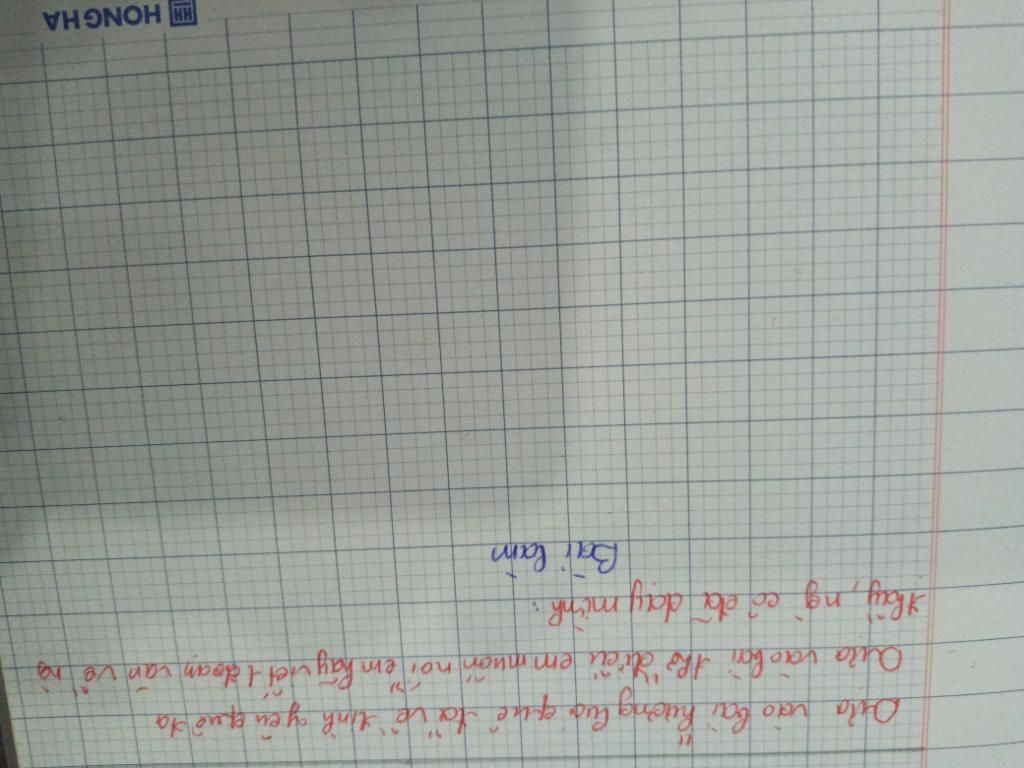 Dựa vào bài hương lúa quê ta về tình yêu quê ta
Dựa vào bài thơ đi ơi em muốn nói em hãy viết 1 đoạn văn về ng
thầy, ng cô đã dạy mình:
Bài làm
HONG HA